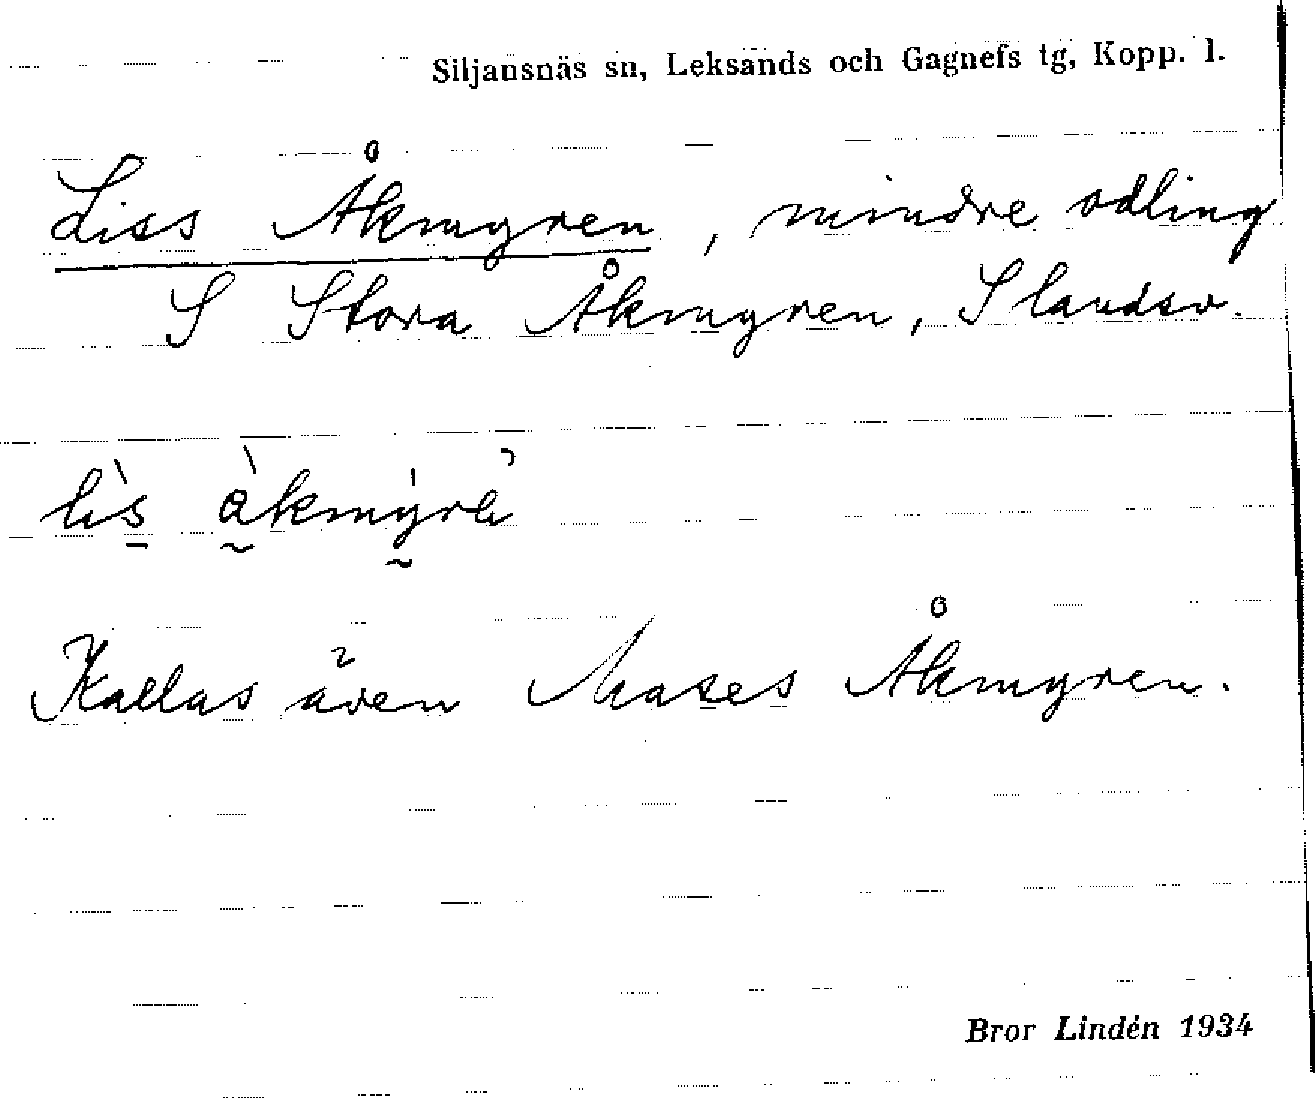 Siljansnäs sn, Leksands och Gagnefs tg, Kopp. l.
Liss Åkmyren, mindre odling
S Stora Åkmyren, S landsv.
Kallas även Mases Åkmyren.
Bror Lindén 1934